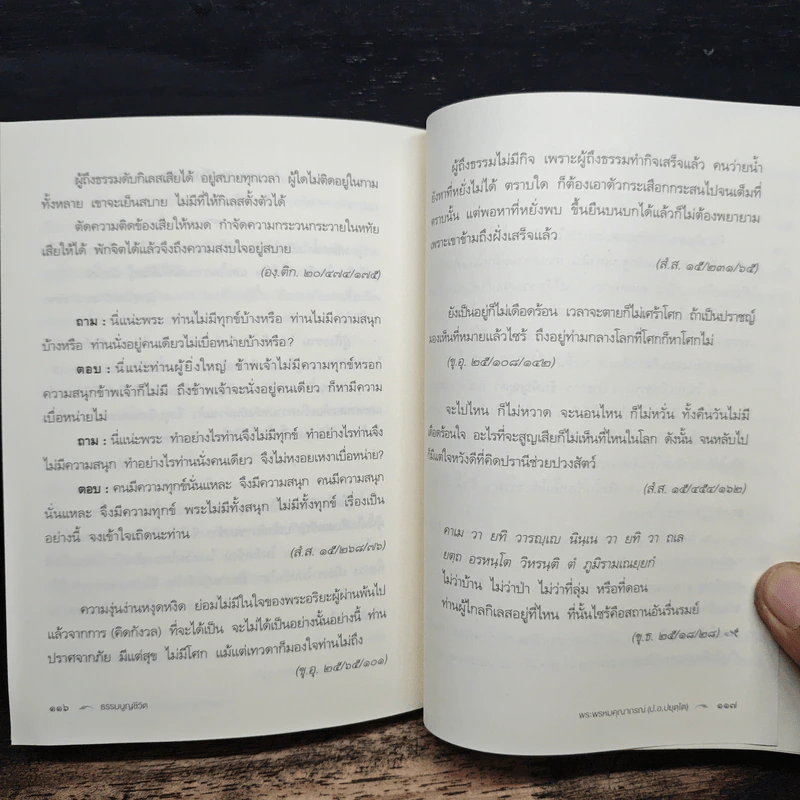 ผู้ถึงธรรมดับกิเลสเสียได้ อยู่สบายทุกเวลา ผู้ใดไม่ติดอยู่ในกาม
ทั้งหลาย เขาจะเย็นสบาย ไม่มีที่ให้กิเลสตั้งตัวได้
ตัดความติดข้องเสียให้หมด กำจัดความกระวนกระวายในหทัย
เสียให้ได้ พักจิตได้แล้วจึงถึงความสงบใจอยู่สบาย
(องฺ.ติก. ๒๐/๔๗๔/๑๗๕)
ถาม : นี่แน่ะพระ ท่านไม่มีทุกข์บ้างหรือ ท่านไม่มีความสนุก
บ้างหรือ ท่านนั่งอยู่คนเดียวไม่เบื่อหน่ายบ้างหรือ?
ตอบ : นี่แน่ะท่านผู้ยิ่งใหญ่ ข้าพเจ้าไม่มีความทุกข์หรอก
ความสนุกข้าพเจ้าก็ไม่มี ถึงข้าพเจ้าจะนั่งอยู่คนเดียว ก็หามีความ
เบื่อหน่ายไม่
ถาม : นี่แน่ะพระ ทำอย่างไรท่านจึงไม่มีทุกข์ ทำอย่างไรท่านจึง
ไม่มีความสนุก ทำอย่างไรท่านนั่งคนเดียว จึงไม่หงอยเหงาเบื่อหน่าย?
ตอบ : คนมีความทุกข์นั่นแหละ จึงมีความสนุก คนมีความสนุก
นั่นแหละ จึงมีความทุกข์ พระไม่มีทั้งสนุก ไม่มีทั้งทุกข์ เรื่องเป็น
อย่างนี้ จงเข้าใจเถิดนะท่าน
(สํ.ส. ๑๕/๒๖๘/๗๖)
ความงุ่นง่านหงุดหงิด ย่อมไม่มีในใจของพระอริยะผู้ผ่านพ้นไป
แล้วจากการ (คิดกังวล) ที่จะได้เป็น จะไม่ได้เป็นอย่างนั้นอย่างนี้ ท่าน
ปราศจากภัย มีแต่สุข ไม่มีโศก แม้แต่เทวดาก็มองใจท่านไม่ถึง
(ขุ.อุ. ๒๕/๖๕/๑๐๑)
๑๑๖ ธรรมนูญชีวิต
ผู้ถึงธรรมไม่มีกิจ เพราะผู้ถึงธรรมทำกิจเสร็จแล้ว คนว่ายน้ำ
ยังหาที่หยั่งไม่ได้ ตราบใด ก็ต้องเอาตัวกระเสือกกระสนไปจนเต็มที่
ตราบนั้น แต่พอหาที่หยั่งพบ ขึ้นยืนบนบกได้แล้วก็ไม่ต้องพยายาม
เพราะเขาข้ามถึงฝั่งเสร็จแล้ว
(สํ.ส. ๑๕/๒๓๑/๖๕)
ยังเป็นอยู่ก็ไม่เดือดร้อน เวลาจะตายก็ไม่เศร้าโศก ถ้าเป็นปราชญ์
มองเห็นที่หมายแล้วไซร้ ถึงอยู่ท่ามกลางโลกที่โศกก็หาโศกไม่
(ขุ.อุ. ๒๕/๑๐๘/๑๔๒)
จะไปไหน ก็ไม่หวาด จะนอนไหน ก็ไม่หวั่น ทั้งคืนวันไม่มี
เดือดร้อนใจ อะไรที่จะสูญเสียก็ไม่เห็นที่ไหนในโลก ดังนั้น จนหลับไป
ก็มีแต่ใจหวังดีที่คิดปรานีช่วยปวงสัตว์
(สํ.ส. ๑๕/๔๕๔/๑๖๒)
คาเม วา ยทิ วารญฺเญ นินฺเน วา ยทิ วา ถเล
ยตฺถ อรหนฺโต วิหรนฺติ ตํ ภูมิรามเณยฺยกํ
ไม่ว่าบ้าน ไม่ว่าป่า ไม่ว่าที่ลุ่ม หรือที่ดอน
ท่านผู้ไกลกิเลสอยู่ที่ไหน ที่นั้นไซร้คือสถานอันรื่นรมย์
(ขุ.ธ. ๒๕/๑๘/๒๘)
พระพรหมคุณาภรณ์ (ป.อ.ปยุตฺโต) ๑๑๗